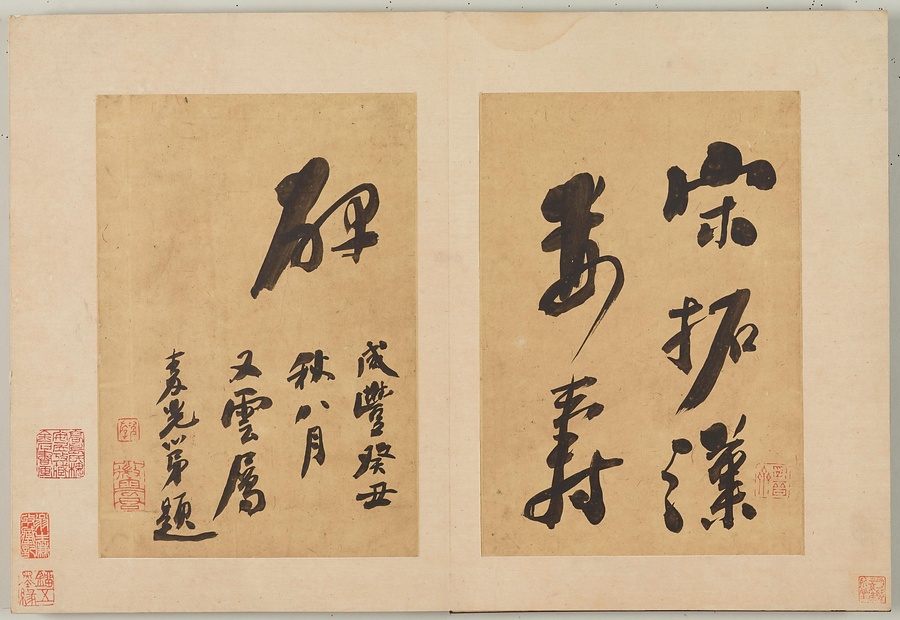 宋拓漢
婁壽
碑
咸豐癸丑
秋八月
又雲屬
光第題